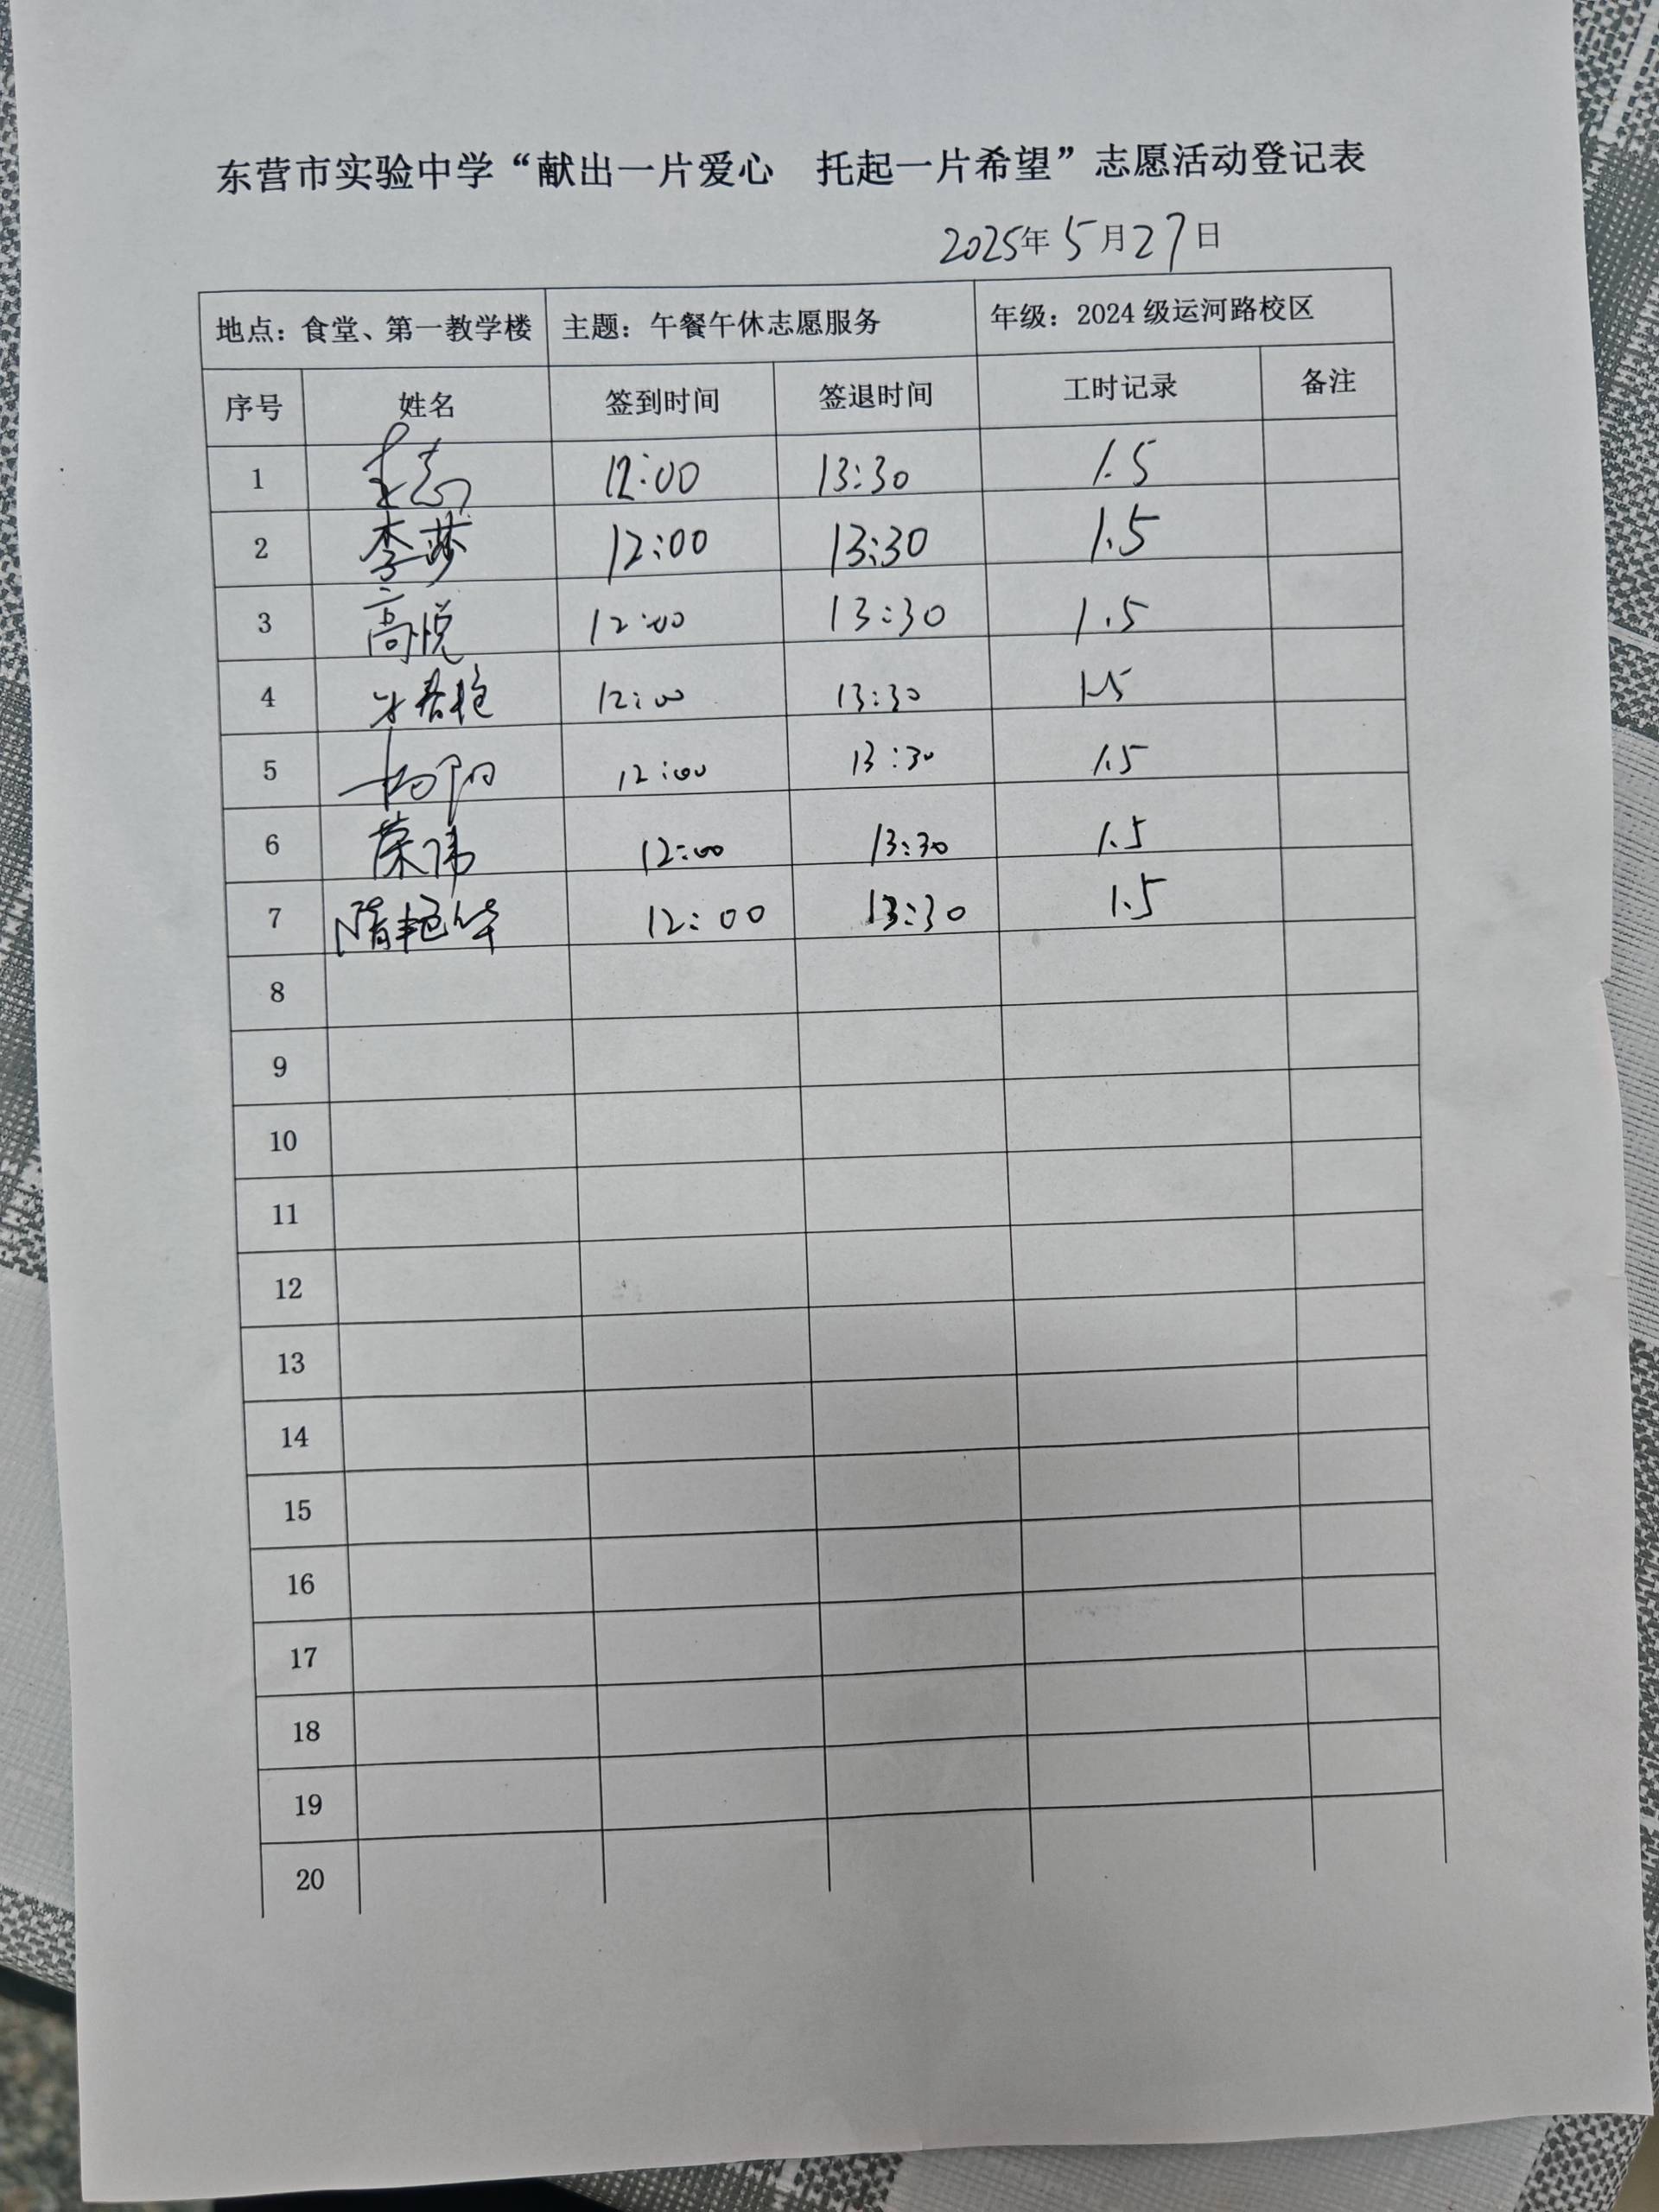 东营市实验中学“献出一片爱心 托起一片希望”志愿活动登记表
2025年5月27日
地点：食堂、第一教学楼 主题：午餐午休志愿服务 年级：2024级运河路校区
序号 姓名 签到时间 签退时间 工时记录 备注
1 12:00 13:30 1.5
2 李莎 12:00 13:30 1.5
3 高悦 12:00 13:30 1.5
4 12:00 13:30 1.5
5 杨阳 12:00 13:30 1.5
6 荣伟 12:00 13:30 1.5
7 隋艳华 12:00 13:30 1.5
8
9
10
11
12
13
14
15
16
17
18
19
20